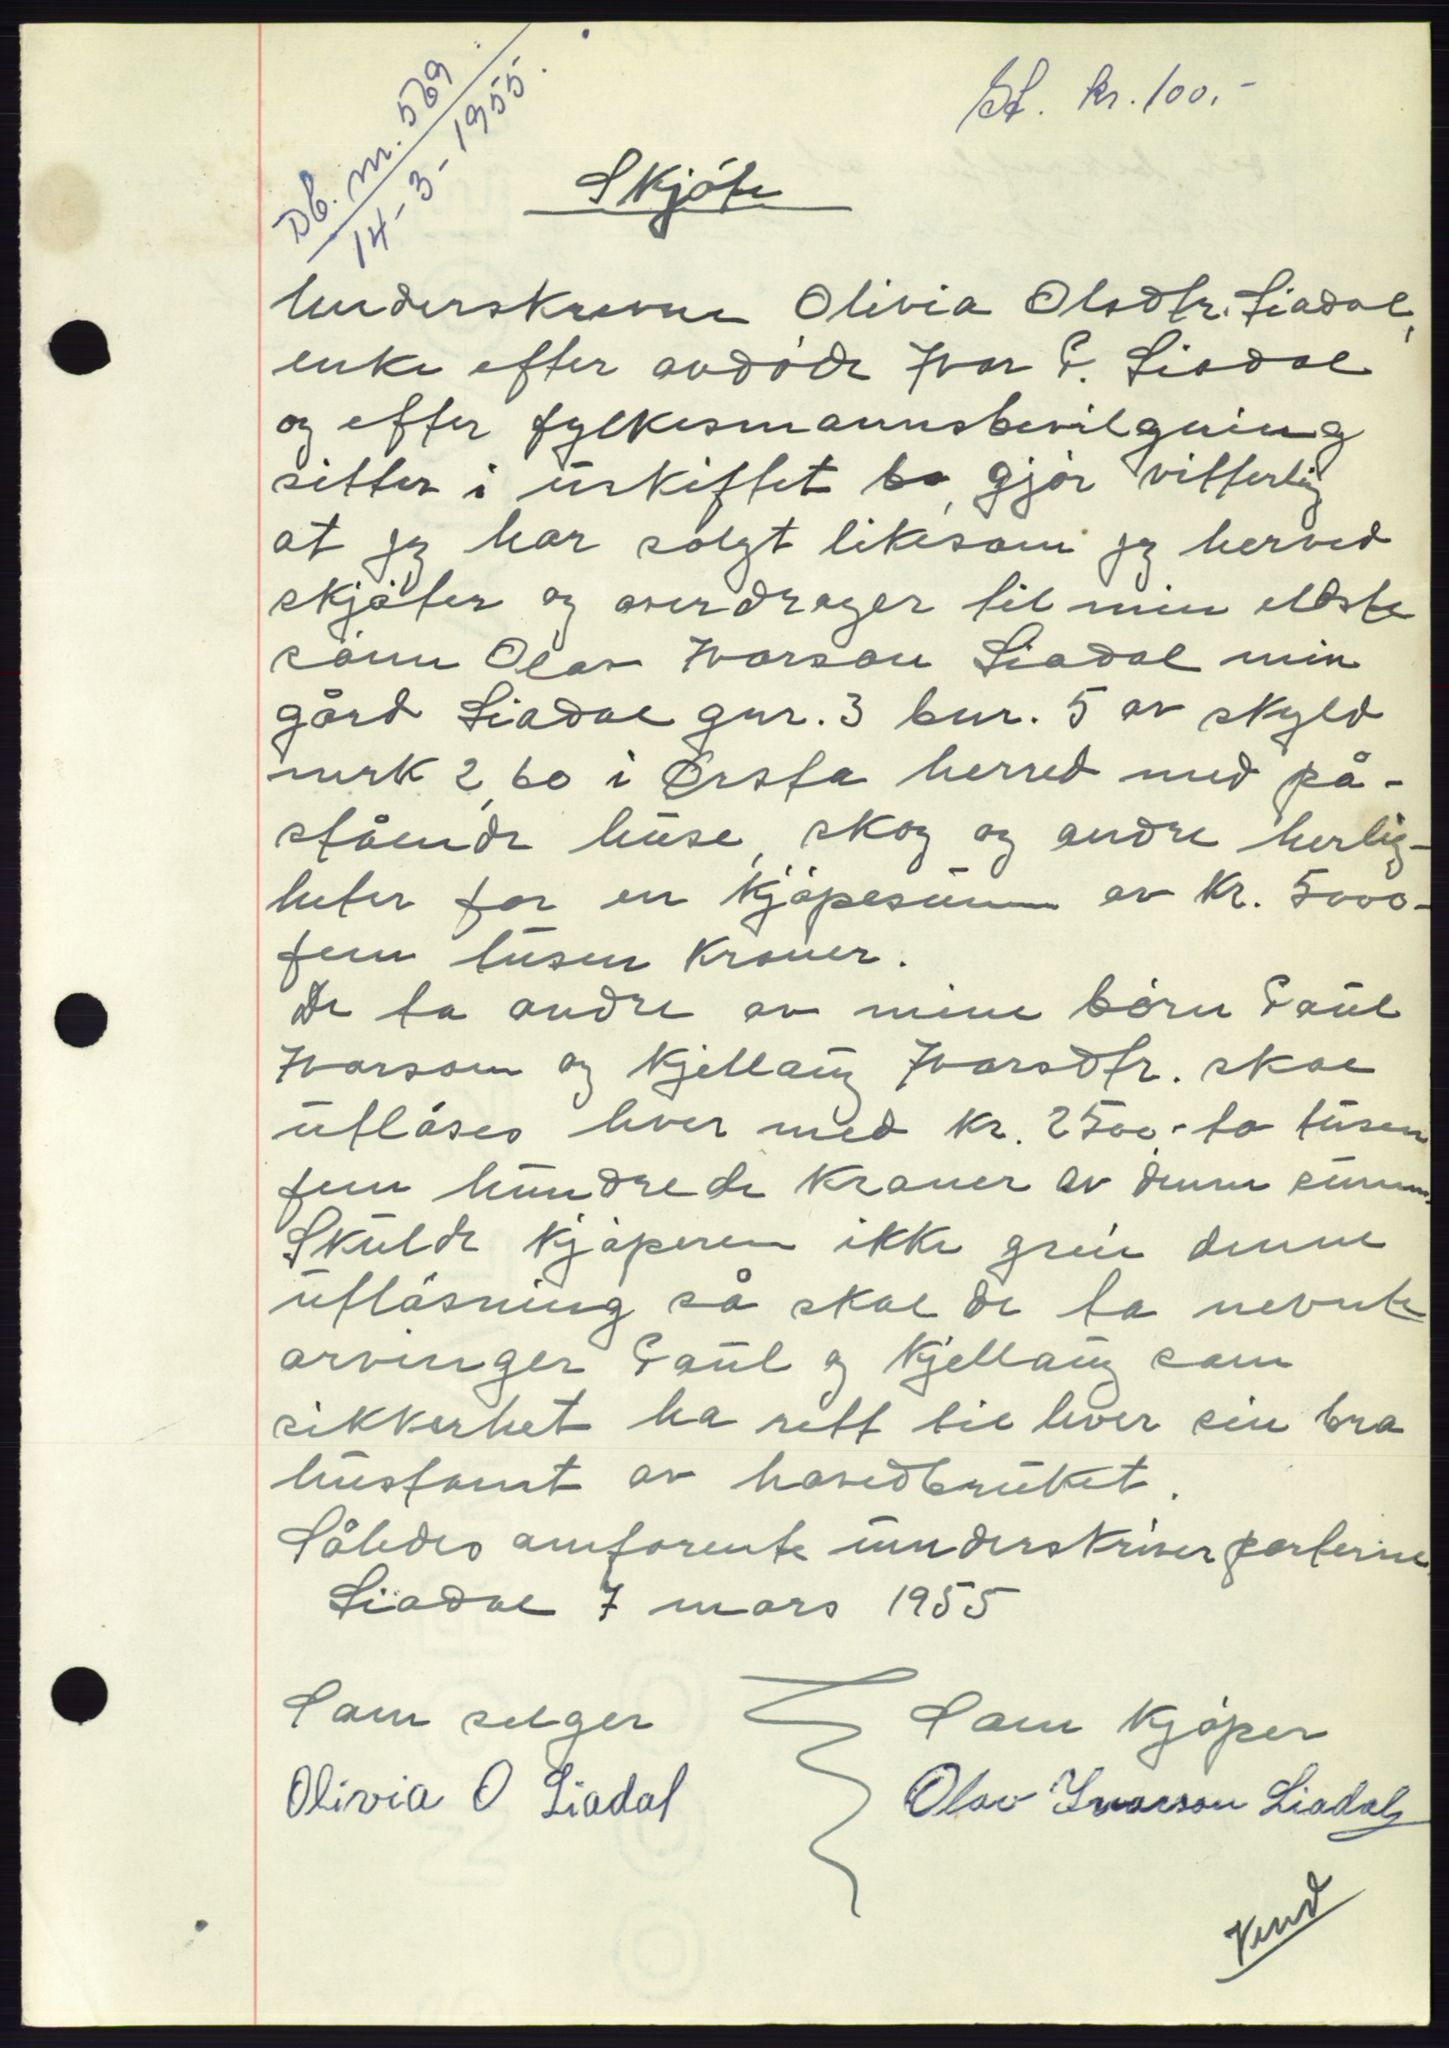 Db. nr. 569
14-3-1955.
St. kr. 100.-
Skjöte
Underskrevne Olivia Olsdtr. Liadal,
enke efter avdöde Ivar P. Liadal
og efter fylkesmannsbevilgning
sitter i uskiftet bo, gjör vitterlig
at jeg har solgt likesom jeg herved
skjöter og overdrager til min eldste
sönn Olav Ivarson Liadal min
gård Liadal gnr. 3 bnr. 5 av skyld
mrk 2,60 i Örsta herred med på-
stående huse, skog og andre herlig-
heter for en kjöpesum av kr. 5000-
fem tusen kroner.
De to andre av mine börn Paul
Ivarson og Kjellaug Ivarsdtr. skal
utlöses hver med kr. 2500,- to tusen
fem hundrede kroner av denne summ.
Skulde kjöperen ikke greie denne
utlösning så skal de to nevnte
arvinger Paul og Kjellaug som
sikkerhet ha rett til hver sin bra
hustomt av hovedbruket.
Således omforente underskriver parterne.
Liadal 7 mars 1955
Som selger
Som kjöper
Olivia O Liadal
Olav Ivarson Liadal
Vend